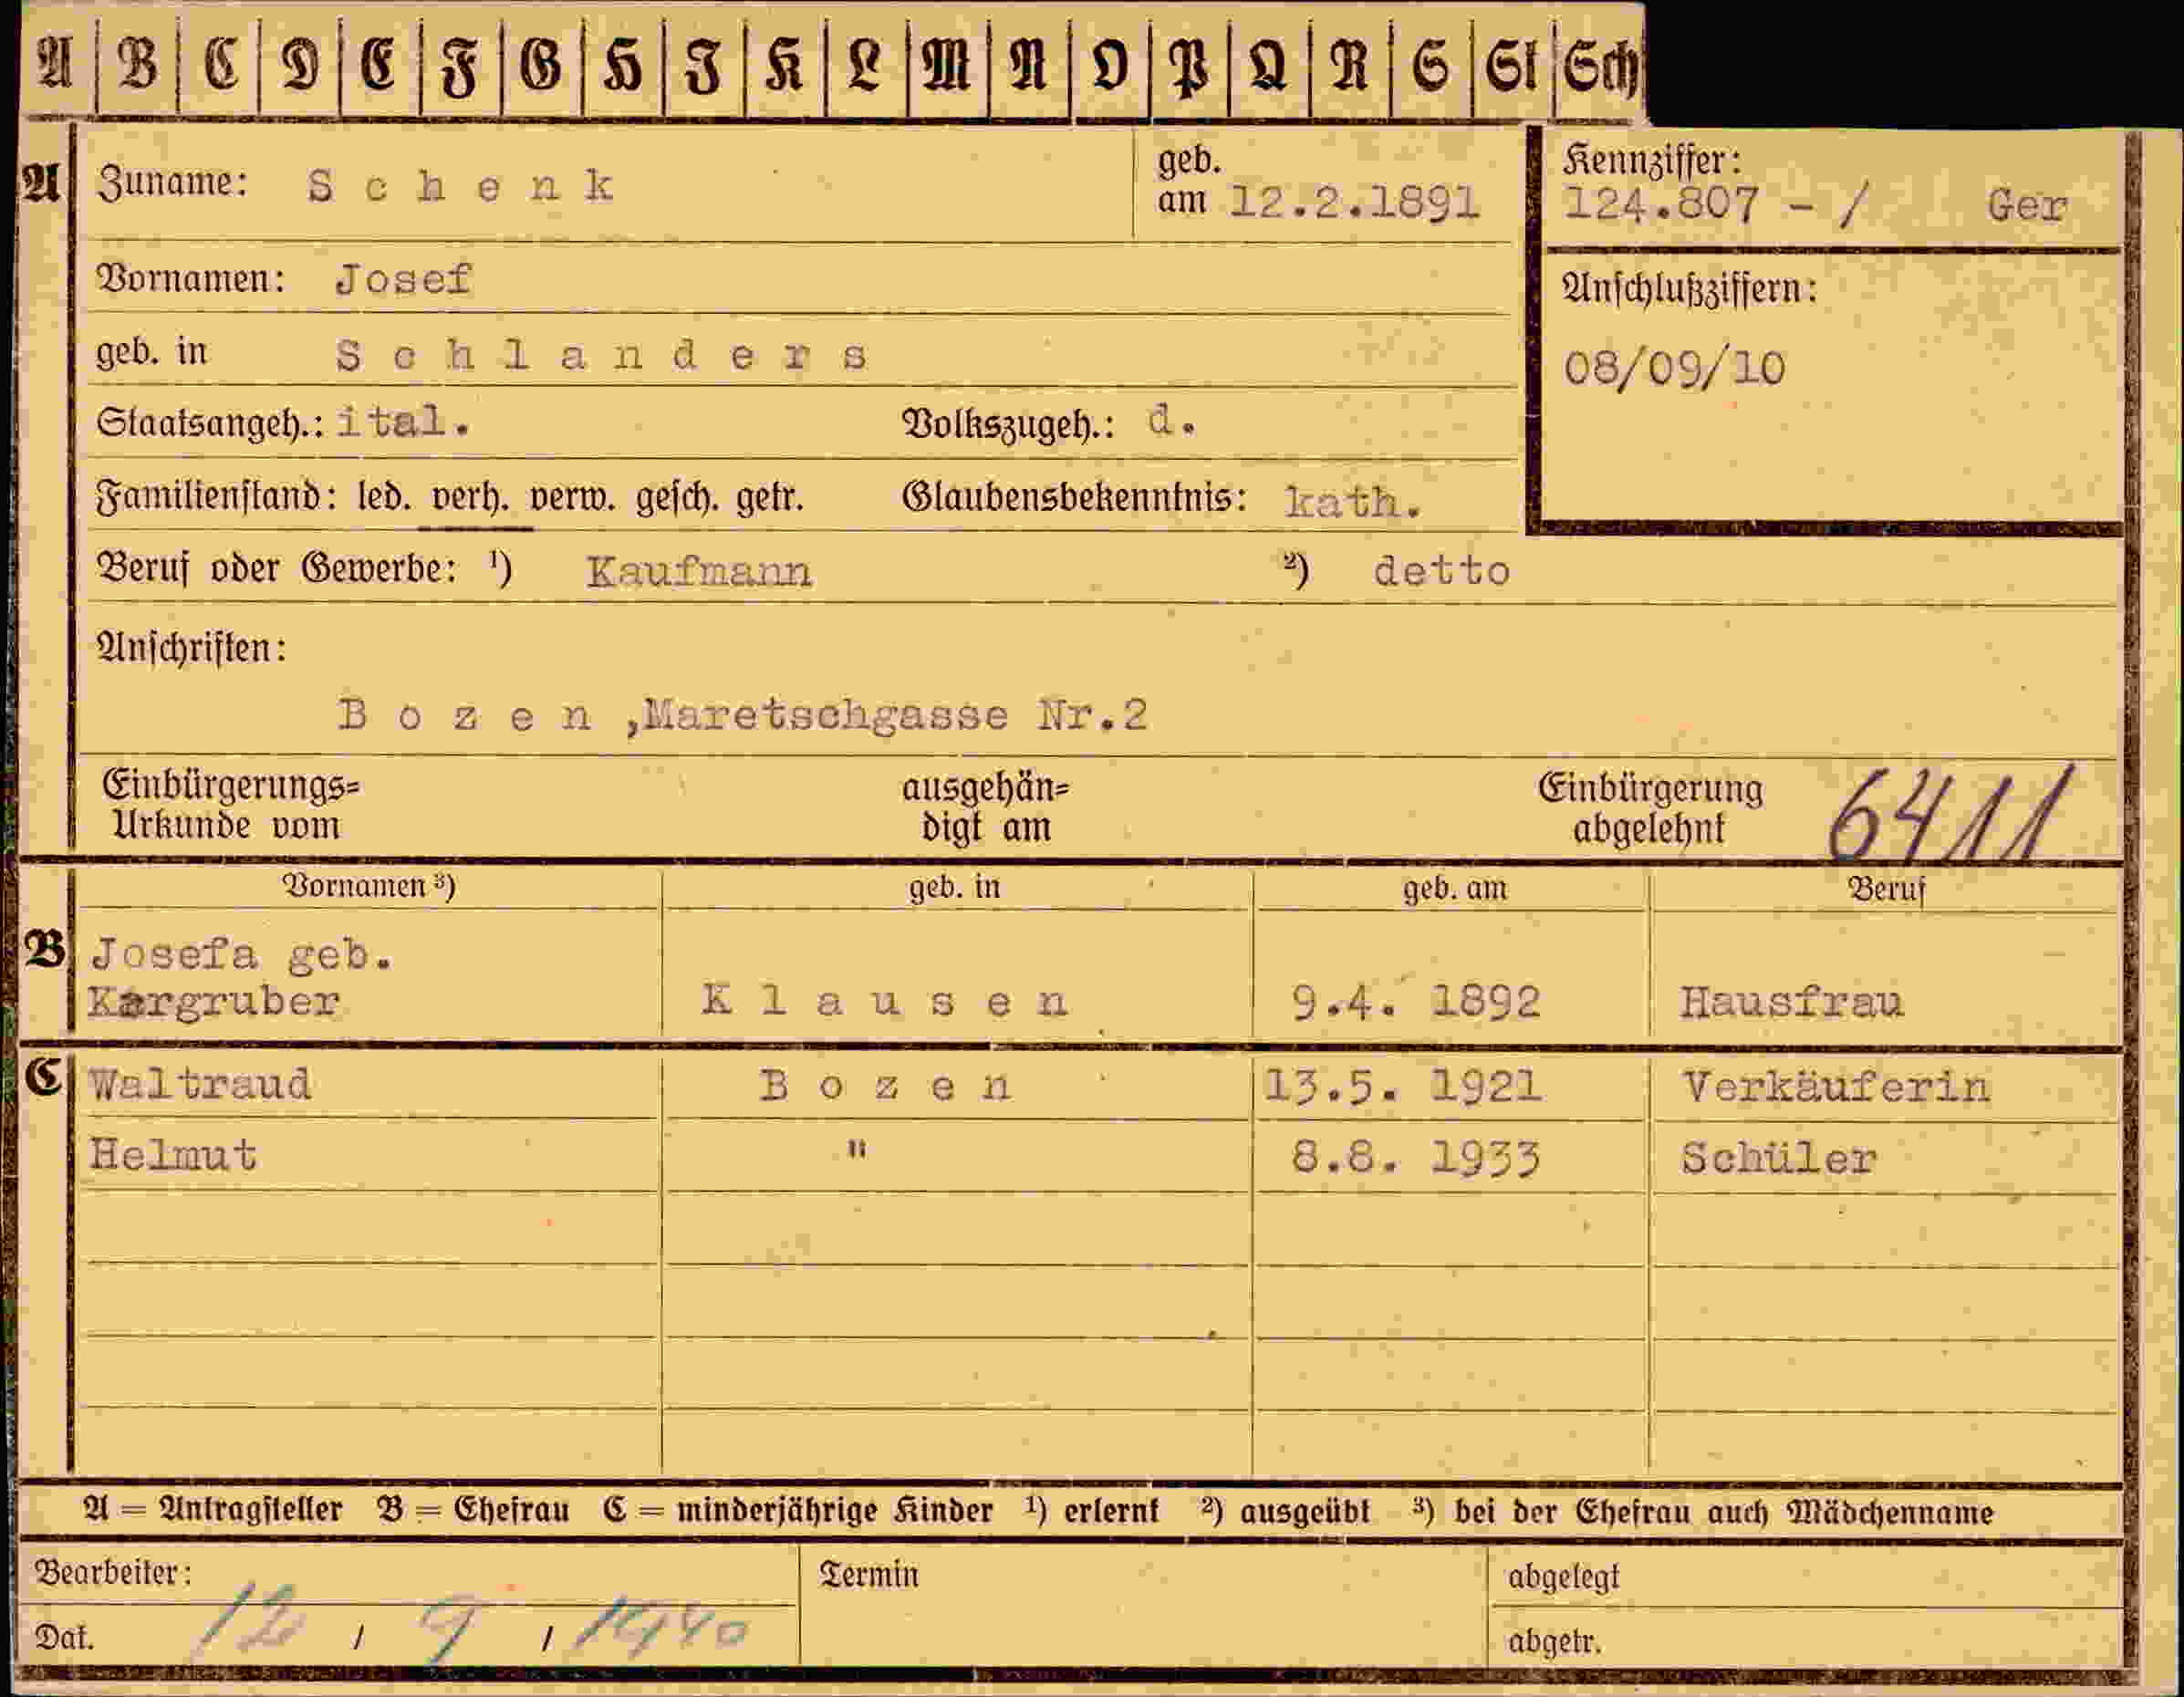 A B C D E F G H J K L M N O P Q R S St Sch
A Zuname: Schenk geb. am 12.2.1891
Kennziffer: 124.807 - / Ger
Vornamen: Josef
Anschlußziffern:
geb. in Schlanders
08/09/10
Staatsangeh.: ital. Volkszugeh.: d.
Familienstand: led. verh. verw. gesch. getr. Glaubensbekenntnis: kath.
Beruf oder Gewerbe: ¹) Kaufmann ²) detto
Anschriften:
Bozen ,Maretschgasse Nr.2
Einbürgerungs= ausgehän= Einbürgerung 6411
Urkunde vom digt am abgelehnt
Vornamen ³) geb. in geb. am Beruf
B Josefa geb.
Kargruber Klausen 9.4. 1892 Hausfrau
C Waltraud Bozen 13.5. 1921 Verkäuferin
Helmut " 8.8. 1933 Schüler
A = Antragsteller B = Ehefrau C = minderjährige Kinder ¹) erlernt ²) ausgeübt ³) bei der Ehefrau auch Mädchenname
Bearbeiter: Termin abgelegt
Dat. 12 / 9 / 1940 abgetr.